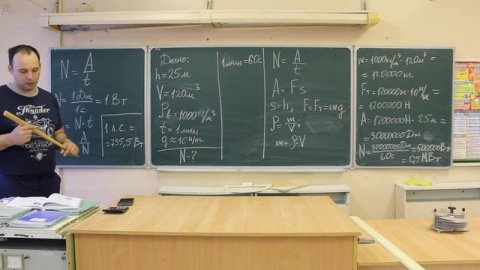 Thunder
N = A/t
N = 1Дж/1с = 1 Вт
N · t
A/N
1 л.с. = 735,5 Вт
Дано:
h = 25 м
V = 120 м³
ρв = 1000 кг/м³
t = 1 мин
g ≈ 10 Н/кг
N - ?
1 мин = 60с
N = A/t
A = Fs
s = h; F = Fт = mg
ρ = m/V;
m = ρV
m = 1000 кг/м³ · 120 м³ =
= 120000 кг
Fт = 120000 кг · 10 Н/кг =
= 1200000 Н
A = 1200000 Н · 25 м =
= 30000000 Дж
N = 30000000 Дж/60с = 500000 Вт =
= 0,5 МВт